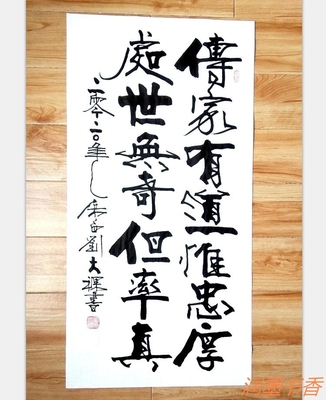 傳家有道惟忠厚
處世無奇但率真
二零二〇年劉大書
香